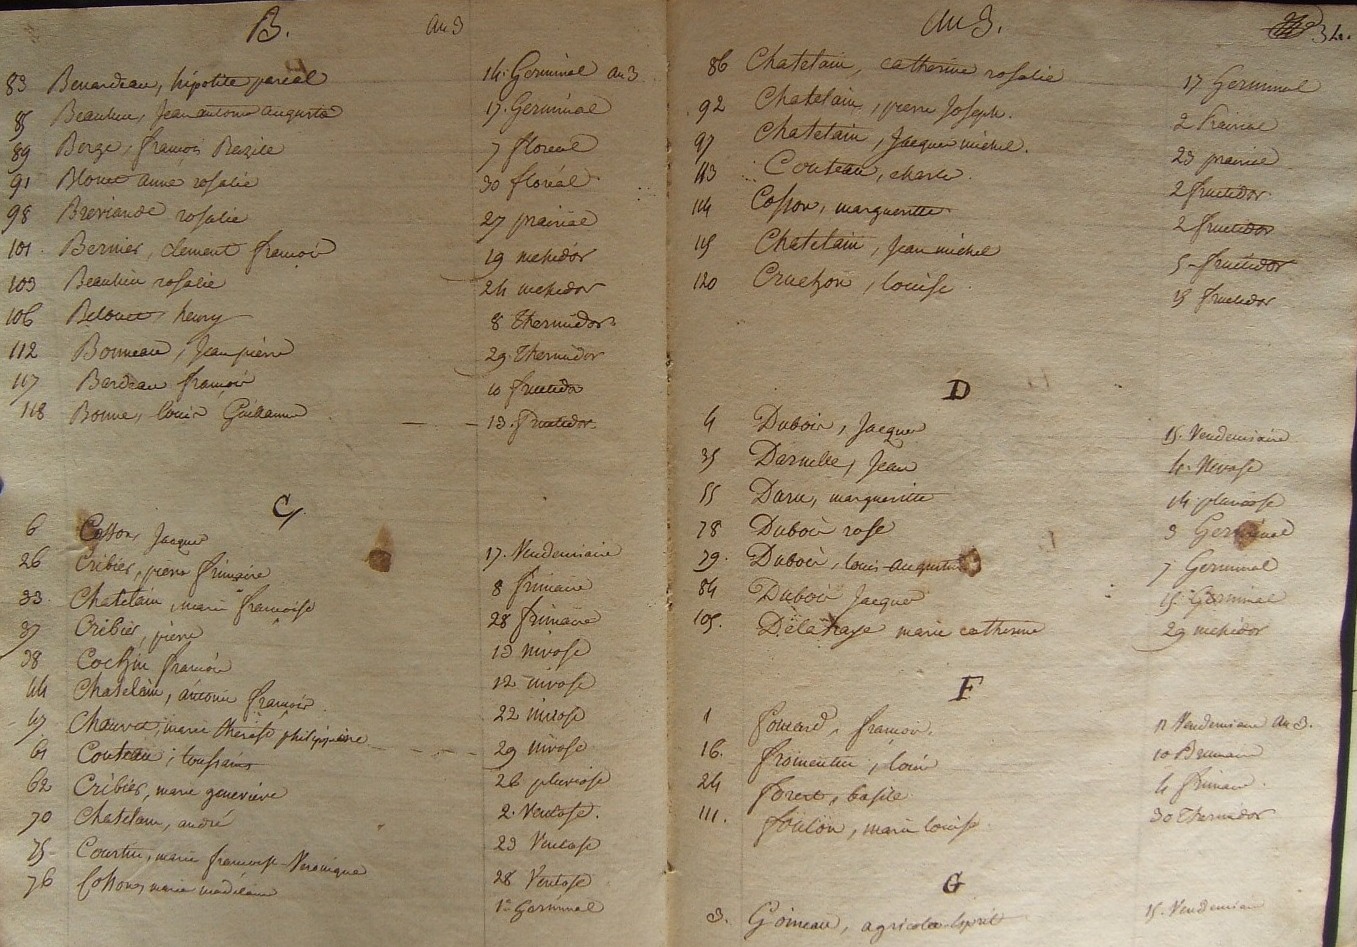 B. an 3
83 Benardeau, hipolite pareal 14. Germinal an 3
85 Beaulieu, Jean antoine auguste 17. Germinal
89 Berge, francois Bazile 7 floreal
91 Blouet anne rosalie 30 floréal
98 Breviande rosalie 27 prairial
101 Bernier, clement francois 19 messidor
103 Beaulieu rosalie 24 messidor
106 Belouet henry 8 Thermidor
112 Bonneau, Jean pierre 29. Thermidor
117 Bardeau francois 10 fructidor
118 Bonne, louis Guillaume 13. fructidor
C
6 Cosson, Jacques 17. Vendemiaire
26 Cribier, pierre frimaire 8 frimaire
33 Chatelain, marie francoise 28 frimaire
37 Cribier, pierre 13 nivose
38 Cochin francois 12 nivose
44 Chatelain, antoine francois 22 nivose
47 Chauvet, marie therese philippine 29 nivose
61 Couteau, toussaint 26 pluviose
62 Cribier, marie genevieve 2. Ventose.
70 Chatelain, andré 23 Ventose
75 Courtin, marie francoise Veronique 28 Ventose
76 Cosson, marie madelaine 1er Germinal
an 3. 34.
86 Chatelain, catherine rosalie 17 Germinal
92 Chatelain, pierre Joseph. 2 Prairial
97 Chatelain, Jacques michel. 23 prairial
113 Couteau, charle 2 fructidor
114 Cosson, margueritte 2 fructidor
115 Chatelain, Jean michel 5 fructidor
120 Cruchon, louise 15 fructidor
D
4 Dubois, Jacques 15. Vendemiaire
35 Darnelle, Jean 4. Nivose
55 Daru, margueritte 14 pluviose
78 Dubois rose 3 Germinal
79. Dubois, louis augustin 7 Germinal
84 Dubois Jacques 15. Germinal
105. Delahaye marie catherine 29 messidor
F
1 fouard, francois. 11 Vendemiaire an 3.
16. fromentin, louis 10 Brumaire
24 forest, basile 4 frimaire.
111. foulon, marie louise 30 Thermidor
G
3. Goineau, agricole esprit 15. Vendemiaire